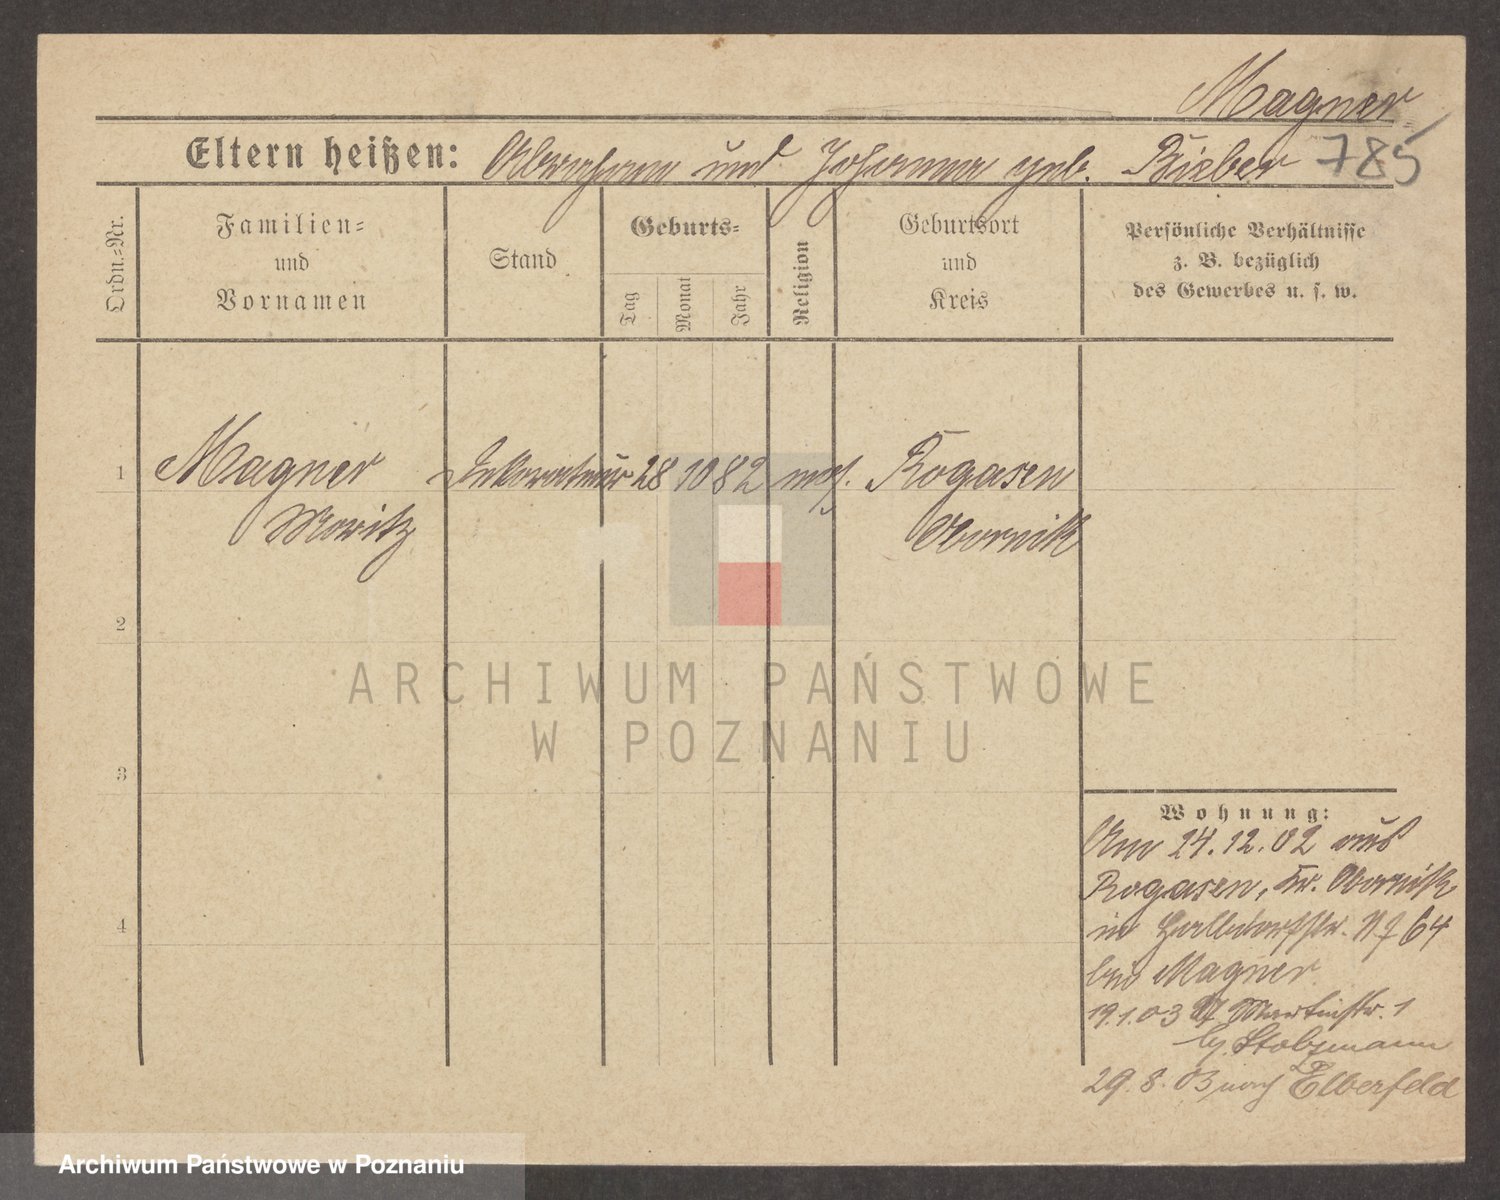 Magner
Eltern heißen: Abraham und Johanna geb. Bieber 785
Ordn.-Nr.
Familien-
und
Vornamen
Stand
Geburts-
Tag
Monat
Jahr
Religion
Geburtsort
und
Kreis
Persönliche Verhältnisse
z. B. bezüglich
des Gewerbes u. s. w.
1 Magner Dekorateur 28 10 82 mos. Rogasen
Moritz Obornik
2
3
4
ARCHIWUM PAŃSTWOWE
W POZNANIU
Wohnung:
Am 24.12.02 aus
Rogasen, Kr. Obornik
in Halbdorfstr. 64
bei Magner
19.1.03 Martinstr. 1
Stolzmann
29.8.03 nach Elberfeld
Archiwum Państwowe w Poznaniu